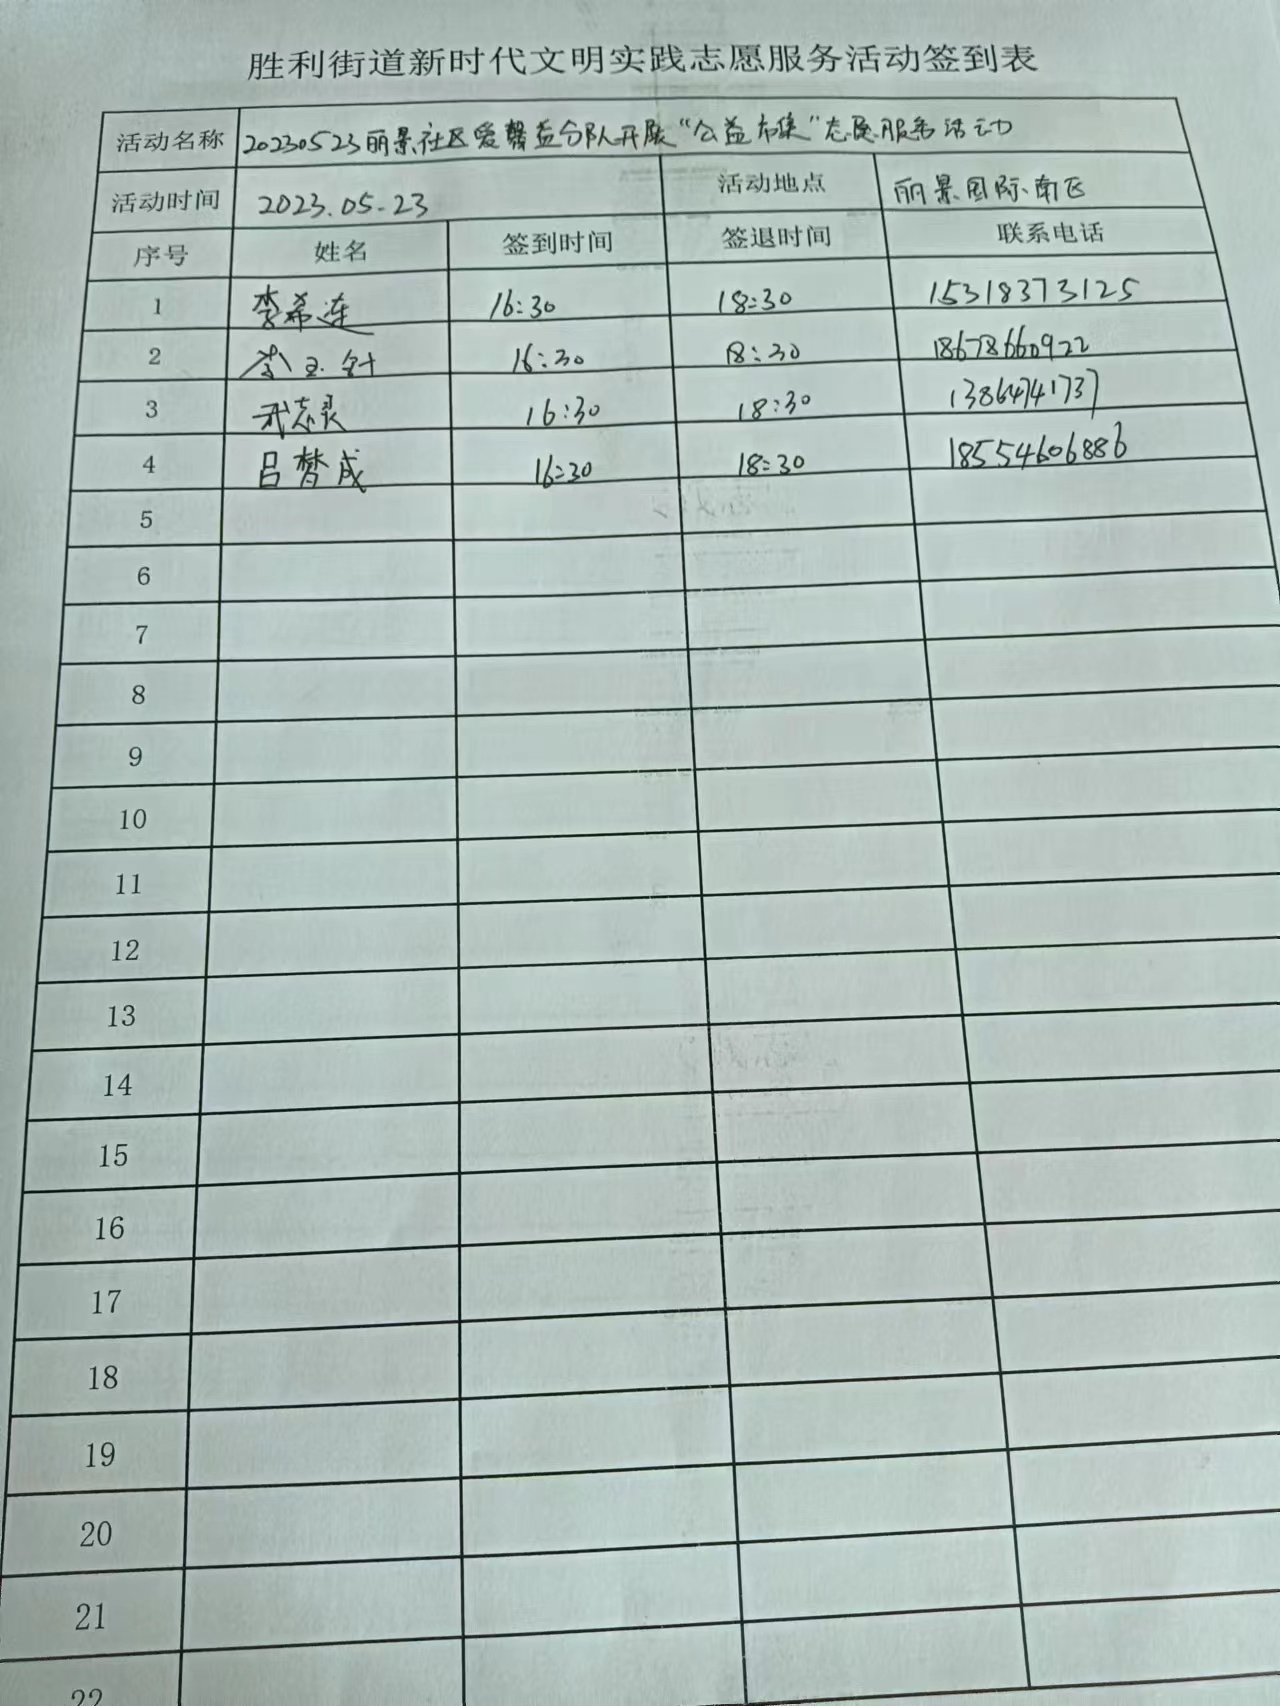 胜利街道新时代文明实践志愿服务活动签到表
活动名称 20230523丽景社区爱馨益分队开展“公益市集”志愿服务活动
活动时间 2023.05.23 活动地点 丽景国际南区
序号 姓名 签到时间 签退时间 联系电话
1 李希连 16:30 18:30 15318373125
2 16:30 18:30 18678660922
3 武志灵 16:30 18:30 13864741737
4 吕梦成 16:30 18:30 18554606886
5
6
7
8
9
10
11
12
13
14
15
16
17
18
19
20
21
22